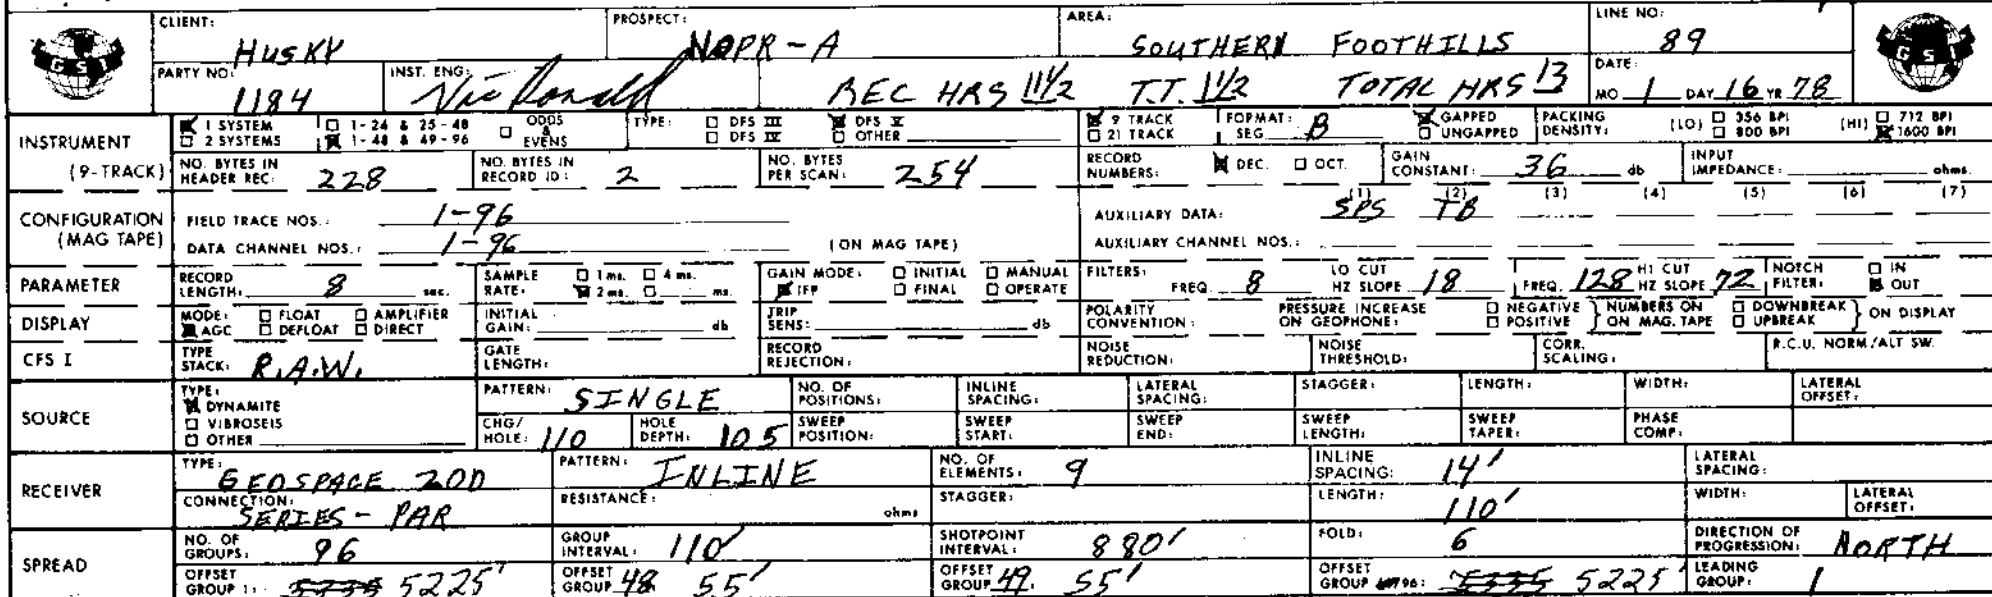 CLIENT: HUSKY PROSPECT: NOPR-A AREA: SOUTHERN FOOTHILLS LINE NO: 89
GSI GSI
PARTY NO: 1184 INST. ENG: Vic Ronald REC HRS 11 1/2 T.T. 1 1/2 TOTAL HRS 13 DATE: MO 1 DAY 16 YR 78
INSTRUMENT 1 SYSTEM 1-24 & 25-48 ODDS & EVENS TYPE: DFS III DFS V 9 TRACK FORMAT: SEG B GAPPED PACKING DENSITY: (LO) 356 BPI (HI) 712 BPI
2 SYSTEMS 1-48 & 49-96 DFS IV OTHER 21 TRACK UNGAPPED 800 BPI 1600 BPI
(9-TRACK) NO. BYTES IN HEADER REC: 228 NO. BYTES IN RECORD ID: 2 NO. BYTES PER SCAN: 254 RECORD NUMBERS: DEC. OCT. GAIN CONSTANT: 36 db INPUT IMPEDANCE: ohms.
(1) (2) (3) (4) (5) (6) (7)
CONFIGURATION FIELD TRACE NOS.: 1-96 AUXILIARY DATA: SPS TB
(MAG TAPE) DATA CHANNEL NOS.: 1-96 (ON MAG TAPE) AUXILIARY CHANNEL NOS.:
PARAMETER RECORD LENGTH: 8 sec. SAMPLE RATE: 1 ms. 4 ms. 2 ms. ms. GAIN MODE: INITIAL MANUAL IFP FINAL OPERATE FILTERS: FREQ. 8 LO CUT HZ SLOPE 18 FREQ. 128 HI CUT HZ SLOPE 72 NOTCH FILTER: IN OUT
DISPLAY MODE: FLOAT AMPLIFIER AGC DEFLOAT DIRECT INITIAL GAIN: db TRIP SENS: db POLARITY CONVENTION: PRESSURE INCREASE ON GEOPHONE: NEGATIVE POSITIVE NUMBERS ON ON MAG. TAPE DOWNBREAK UPBREAK ON DISPLAY
CFS I TYPE STACK: R.A.W. GATE LENGTH: RECORD REJECTION: NOISE REDUCTION: NOISE THRESHOLD: CORR. SCALING: R.C.U. NORM/ALT SW.
SOURCE TYPE: DYNAMITE VIBROSEIS OTHER PATTERN: SINGLE NO. OF POSITIONS: INLINE SPACING: LATERAL SPACING: STAGGER: LENGTH: WIDTH: LATERAL OFFSET:
CHG/HOLE: 110 HOLE DEPTH: 105 SWEEP POSITION: SWEEP START: SWEEP END: SWEEP LENGTH: SWEEP TAPER: PHASE COMP:
RECEIVER TYPE: GEOSPACE 20D PATTERN: INLINE NO. OF ELEMENTS: 9 INLINE SPACING: 14' LATERAL SPACING:
CONNECTION: SERIES-PAR RESISTANCE: ohms STAGGER: LENGTH: 110' WIDTH: LATERAL OFFSET:
SPREAD NO. OF GROUPS: 96 GROUP INTERVAL: 110' SHOTPOINT INTERVAL: 880' FOLD: 6 DIRECTION OF PROGRESSION: NORTH
OFFSET GROUP 1: 5225' OFFSET GROUP 48 55' OFFSET GROUP 49. 55' OFFSET GROUP 96: 5225' LEADING GROUP: 1